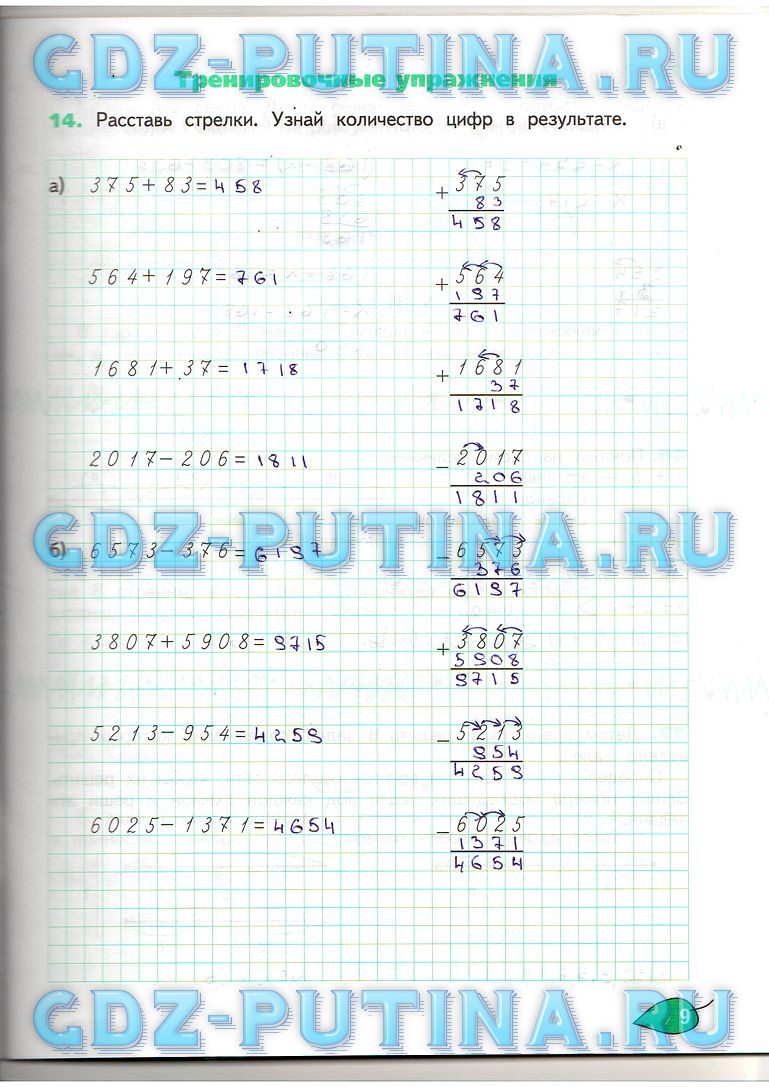 GDZ-PUTINA.RU
Тренировочные упражнения
14. Расставь стрелки. Узнай количество цифр в результате.
а) 375+83=458
+375
83
458
564+197=761
+564
197
761
1681+37=1718
+1681
37
1718
2017-206=1811
-2017
206
1811
GDZ-PUTINA.RU
б) 6573-376=6197
-6573
376
6197
3807+5908=9715
+3807
5908
9715
5213-954=4259
-5213
954
4259
6025-1371=4654
-6025
1371
4654
GDZ-PUTINA.RU
9